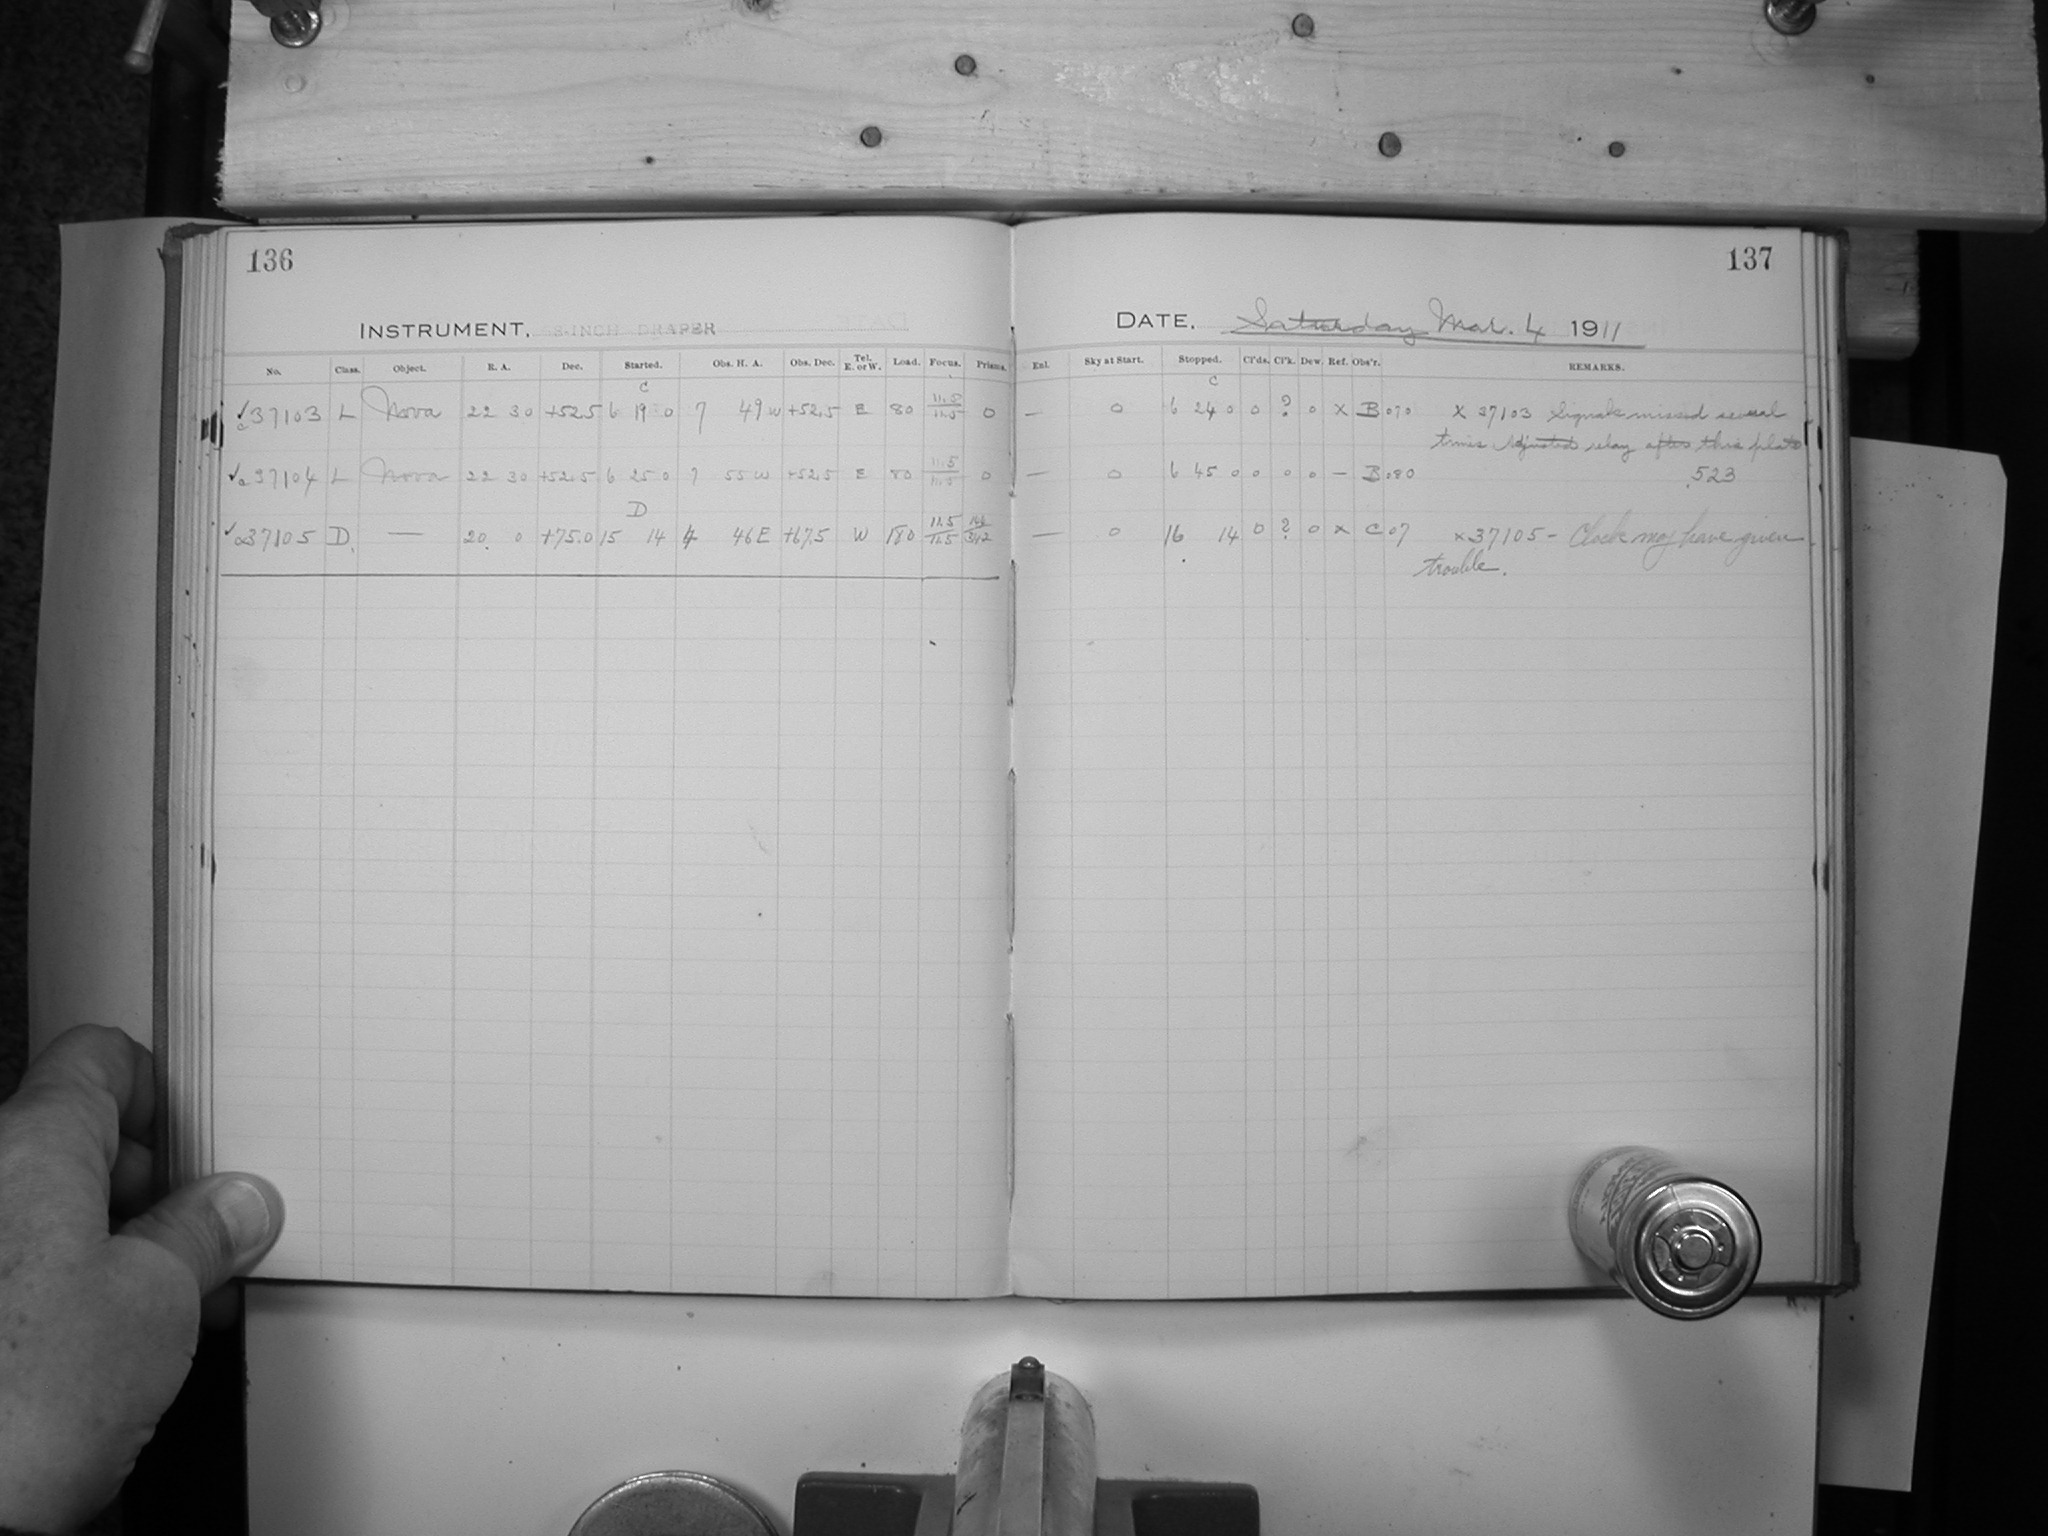 136
137
INSTRUMENT, 8-INCH DRAPER
DATE, Saturday Mar. 4 1911
No. Class. Object. R. A. Dec. Started. Obs. H. A. Obs. Dec. Tel. E. or W. Load. Focus. Prisms. Enl. Sky at Start. Stopped. Cl'ds. Cl'k. Dew. Ref. Obs'r. REMARKS.
C C
✓ c 37103 L Nova 22 30 +52.5 6 19 0 7 49 W +52.5 E 80 11.5/11.5 0 — 0 6 24 0 0 ? 0 X B 070 X 37103 Signals missed several
times Adjusted relay after this plate
✓ 37104 L Nova 22 30 +52.5 6 25 0 7 55 W +52.5 E 80 11.5/11.5 0 — 0 6 45 0 0 0 0 — B 080 523
D
✓ 37105 D. — 20 0 +75.0 15 14 4 46 E +67.5 W 180 11.5/11.5 — 0 16 14 0 ? 0 x C 07 x 37105 - Clock may have given
trouble.